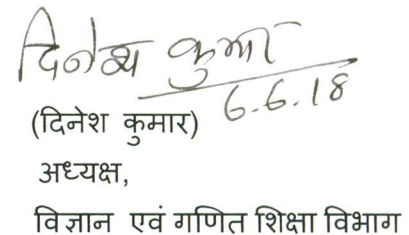 दिनेश कुमार
6.6.18
(दिनेश कुमार)
अध्यक्ष,
विज्ञान एवं गणित शिक्षा विभाग